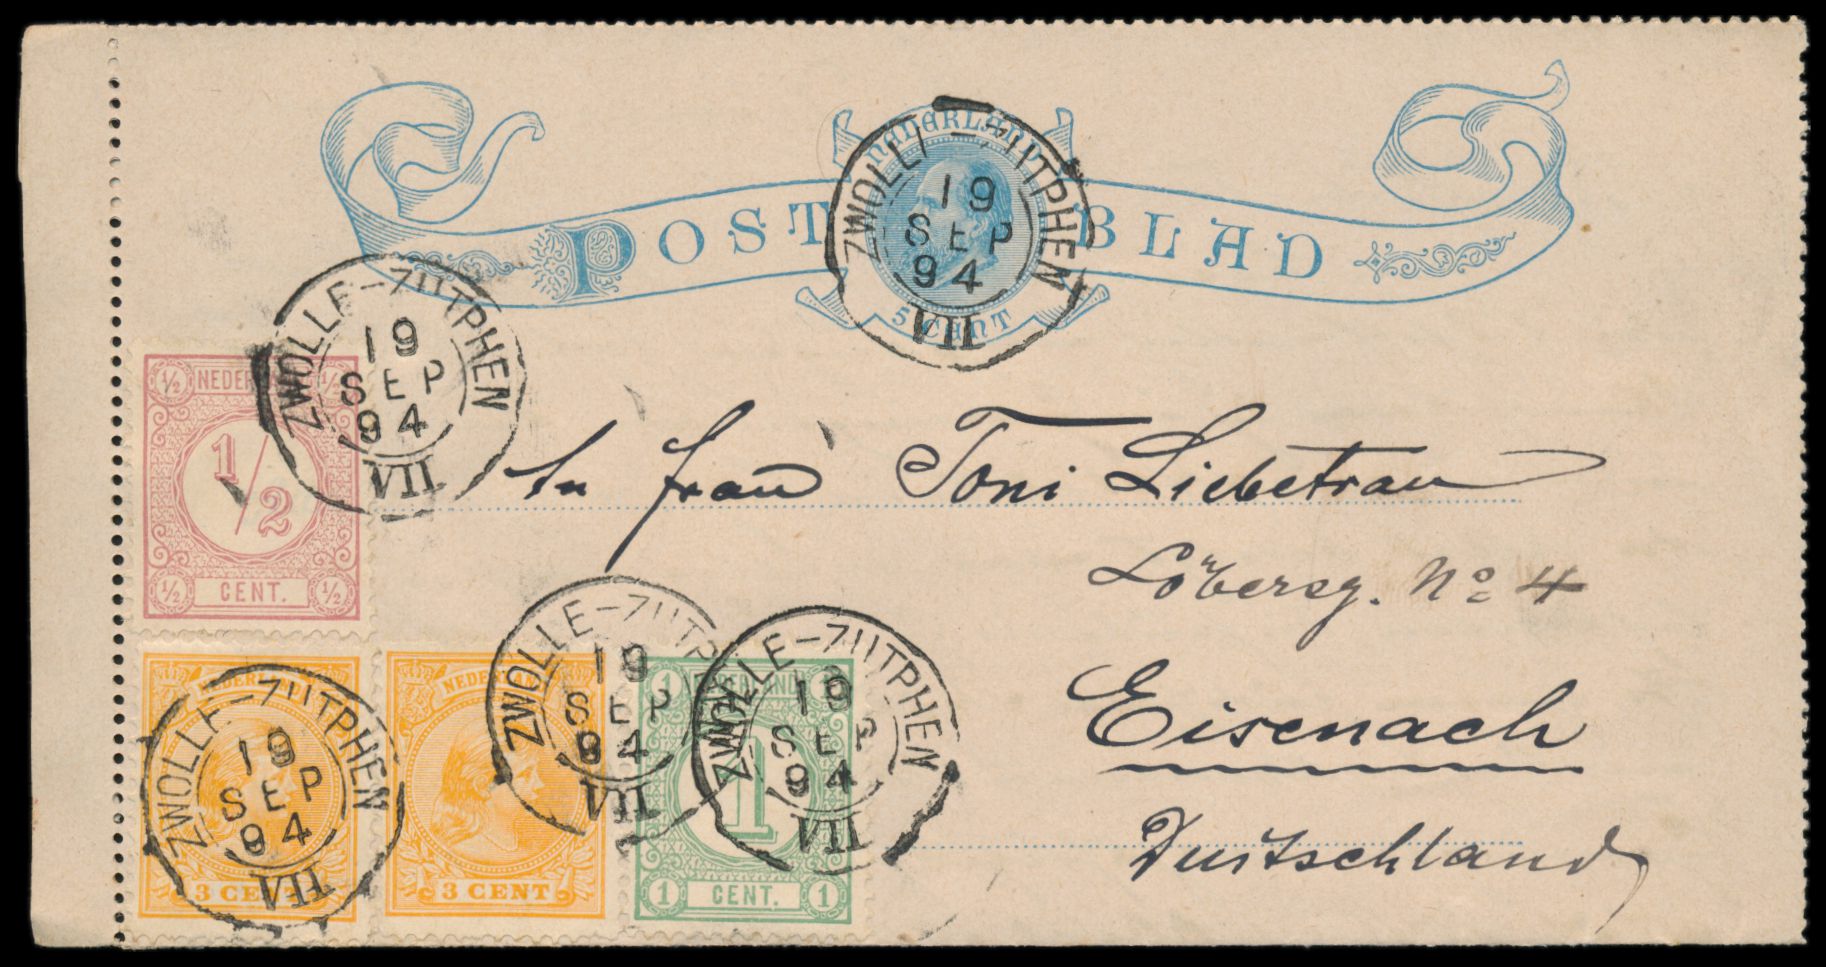 NEDERLAND
POST BLAD
5 CENT
ZWOLLE-ZUTPHEN
19
SEP
94
VII
ZWOLLE-ZUTPHEN
19
SEP
94
VII
½ NEDERLAND ½
1/2
½ CENT. ½
An Frau Toni Liebetrau
Löbersg. No 4
Eisenach
Deutschland
NEDERLAND
3 CENT
ZWOLLE-ZUTPHEN
19
SEP
94
VII
NEDERLAND
3 CENT
ZWOLLE-ZUTP
19
SEP
94
VII
1 NEDERLAND 1
1
1 CENT. 1
ZWOLLE-ZUTPHEN
19
SEP
94
VII